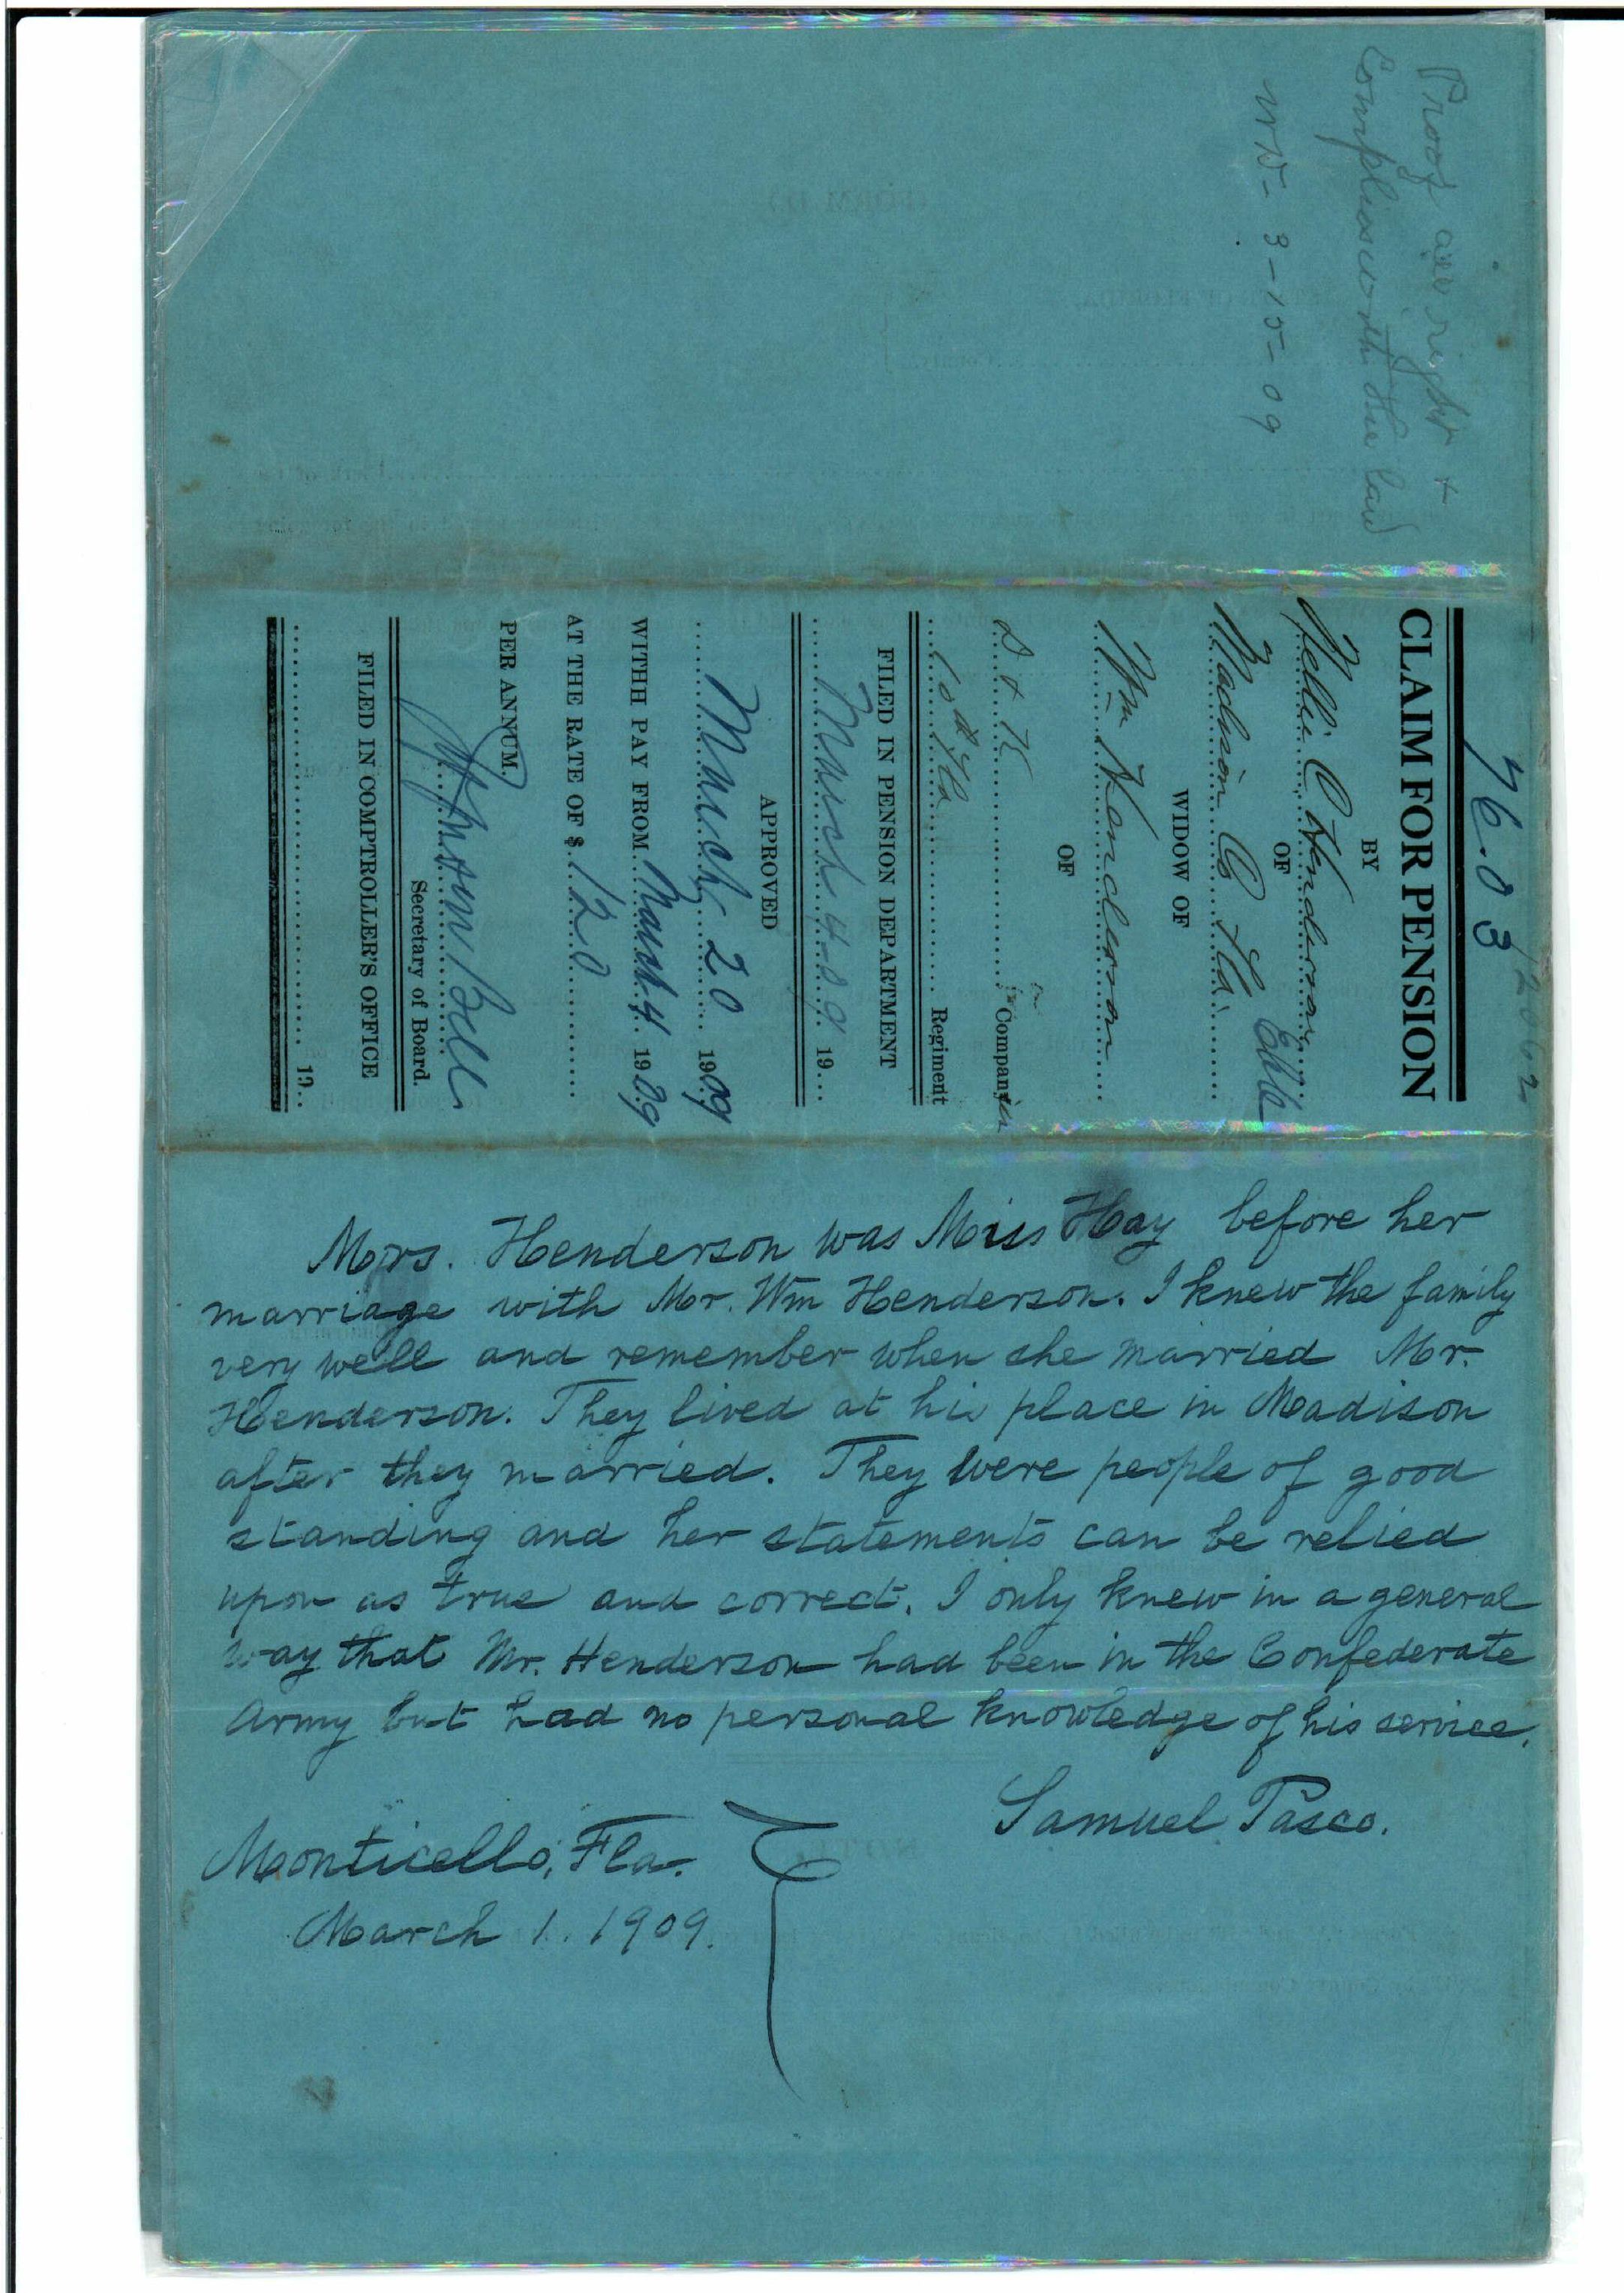 Proof all right &
Complies with the law
3-15-09
7603
12062
CLAIM FOR PENSION
BY
Nellie C Henderson
OF
Madison Co Fla.
WIDOW OF
Wm Henderson
OF
D & K Company
10th Fla Regiment
FILED IN PENSION DEPARTMENT
March 4 09 19...
APPROVED
March 20 1909
WITHH PAY FROM March 4 1909
AT THE RATE OF $ 120
PER ANNUM.
Bell
Secretary of Board.
FILED IN COMPTROLLER'S OFFICE
19..
Mrs. Henderson was Miss Hay before her
marriage with Mr. Wm Henderson. I knew the family
very well and remember when she married Mr.
Henderson. They lived at his place in Madison
after they married. They were people of good
standing and her statements can be relied
upon as true and correct. I only knew in a general
way that Mr. Henderson had been in the Confederate
Army but had no personal knowledge of his service.
Samuel Pasco.
Monticello, Fla.
March 1. 1909.